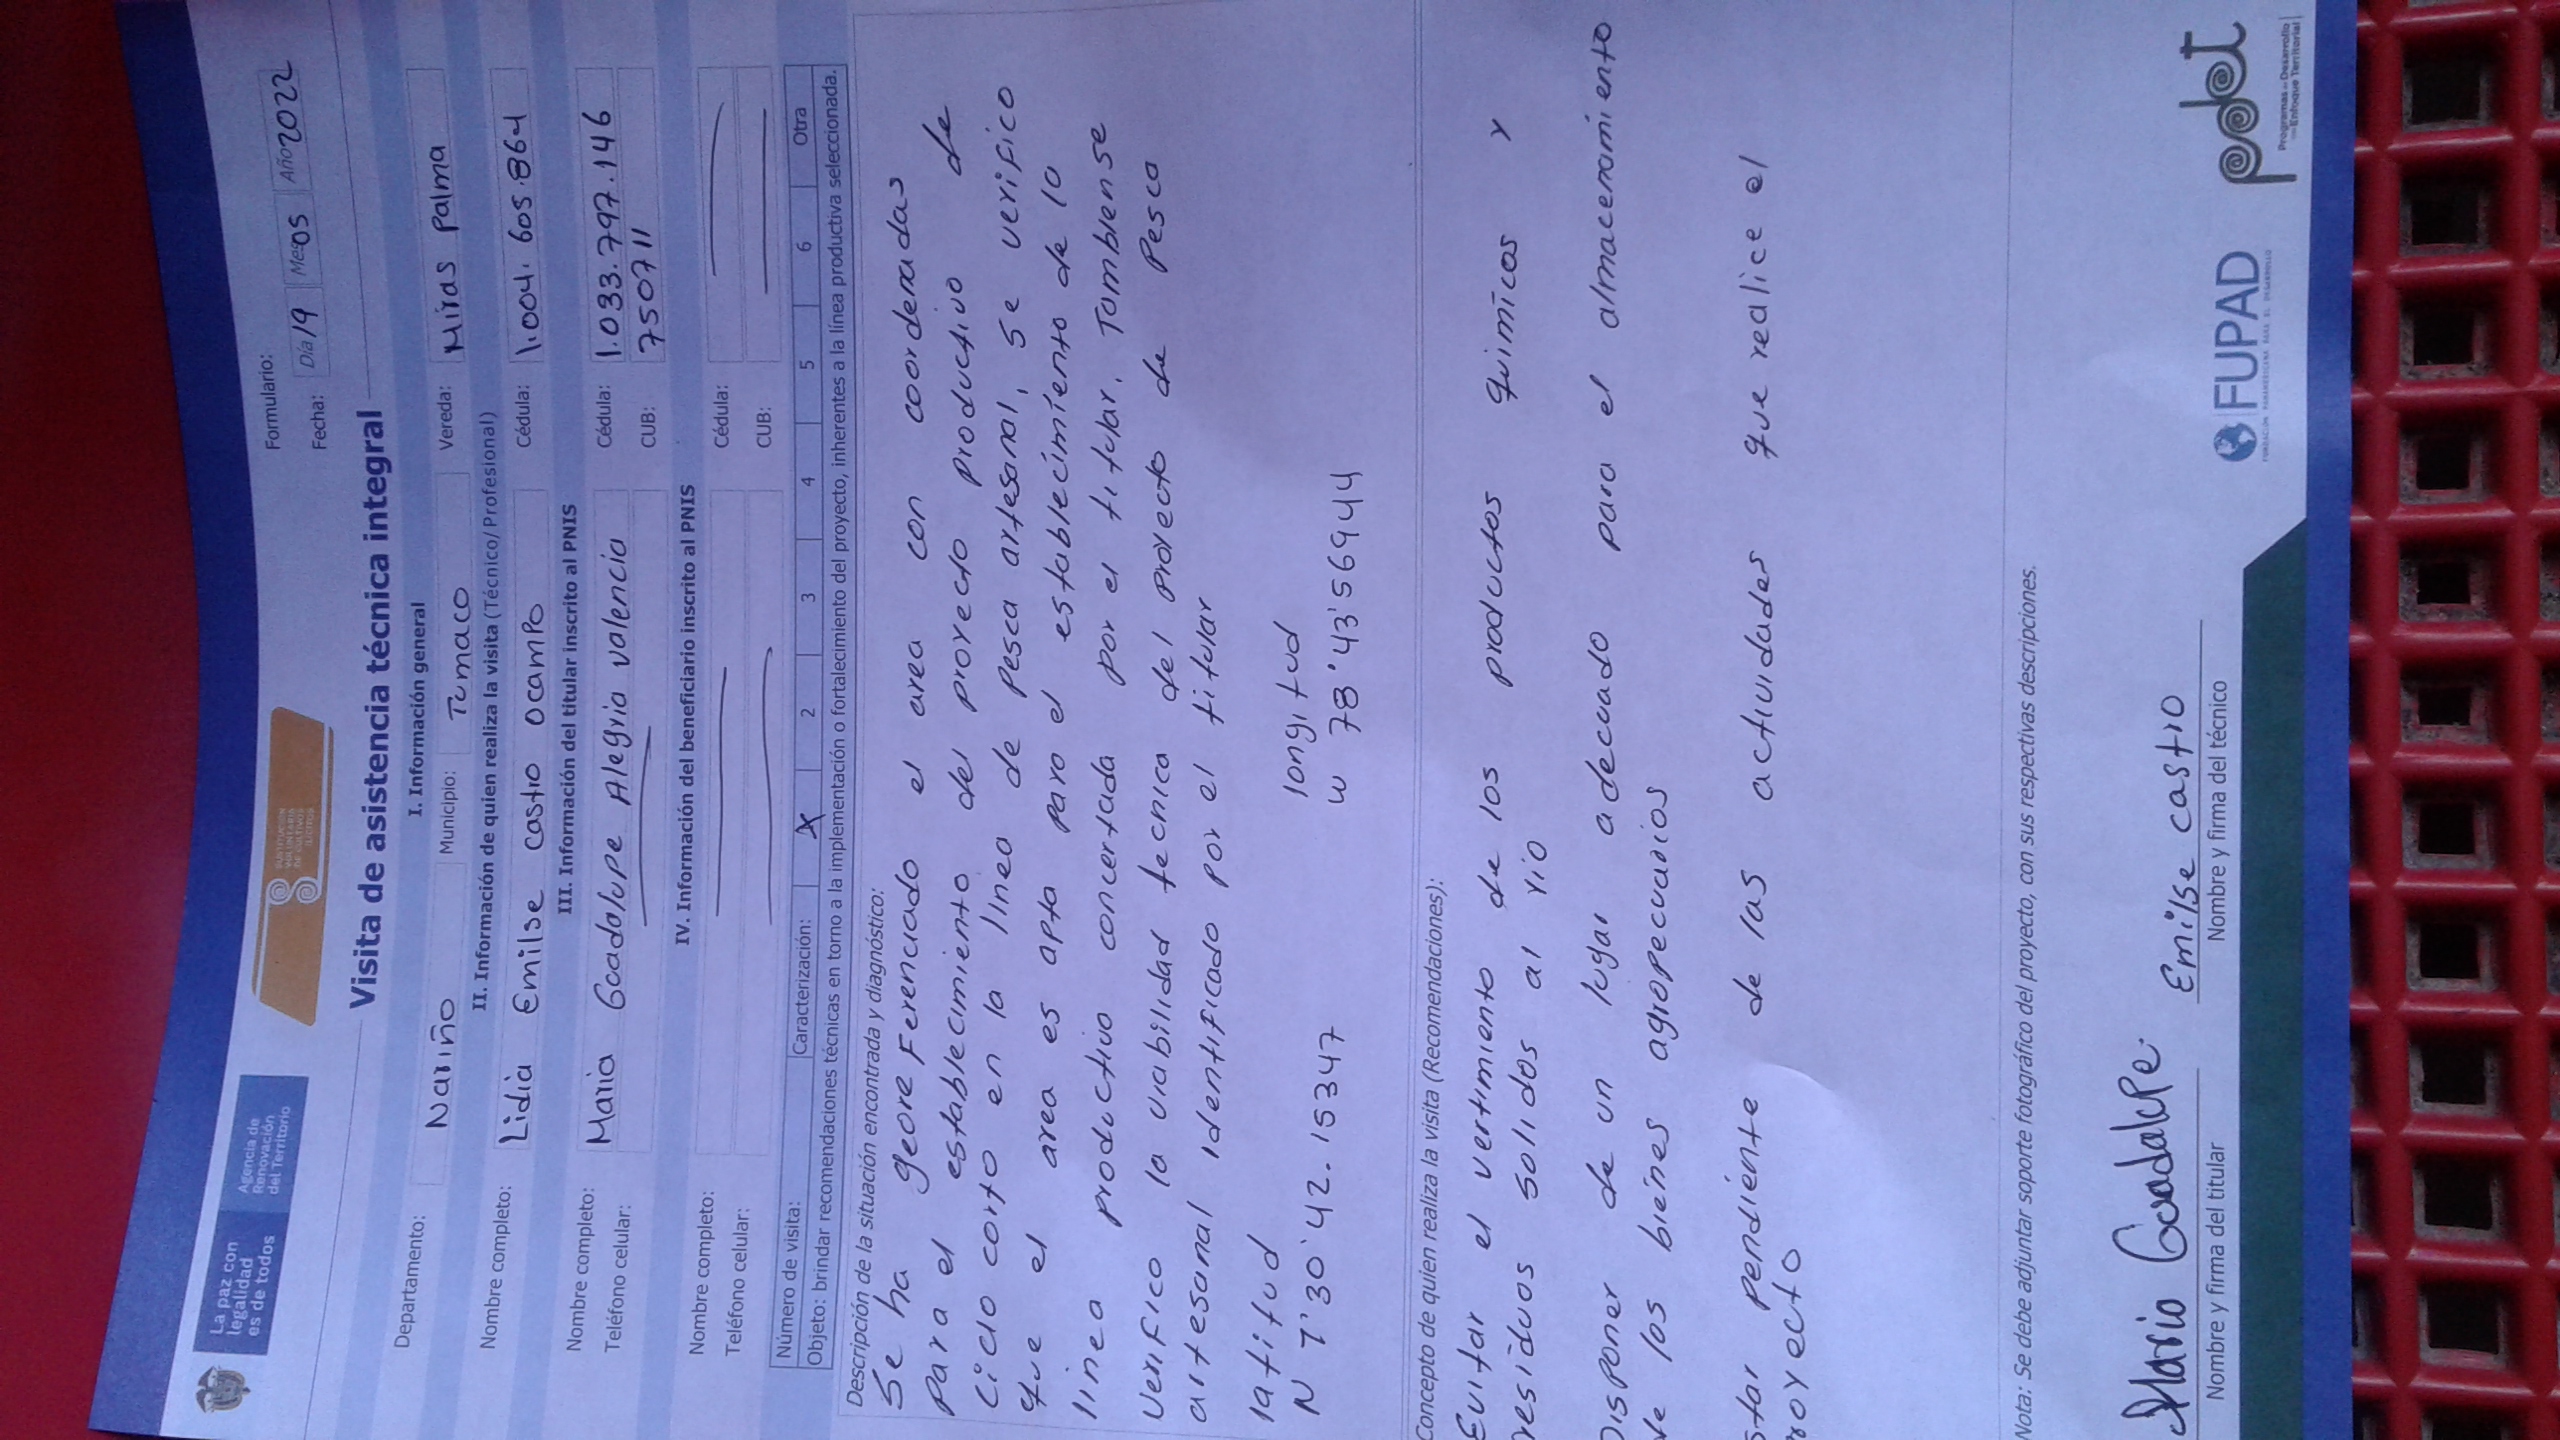 La paz con
legalidad
es de todos
Agencia de
Renovación
del Territorio
SUSTITUCIÓN
VOLUNTARIA
DE CULTIVOS
ILÍCITOS
Formulario:
Fecha: Día 19 Mes 05 Año 2022
Visita de asistencia técnica integral
I. Información general
Departamento: Nariño Municipio: Tumaco Vereda: Miras palma
II. Información de quien realiza la visita (Técnico/ Profesional)
Nombre completo: Lidia Emilse castro ocampo Cédula: 1.004.605.864
III. Información del titular inscrito al PNIS
Nombre completo: Maria Guadalupe Alegria valencia Cédula: 1.033.797.146
Teléfono celular: CUB: 750711
IV. Información del beneficiario inscrito al PNIS
Nombre completo: Cédula:
Teléfono celular: CUB:
Número de visita: Caracterización: X 2 3 4 5 6 Otra
Objeto: brindar recomendaciones técnicas en torno a la implementación o fortalecimiento del proyecto, inherentes a la línea productiva seleccionada.
Descripción de la situación encontrada y diagnóstico:
Se ha georeferenciado el area con coordenadas
para el establecimiento del proyecto productivo de
ciclo corto en la linea de pesca artesanal, se verifico
que el area es apta para el establecimiento de la
linea productivo concertada por el titular. Tambien se
verifico la viabilidad tecnica del proyecto de pesca
artesanal identificado por el titular
latitud longitud
N 1°30'42.15347 w 78°43'56944
Concepto de quien realiza la visita (Recomendaciones):
Evitar el vertimiento de los productos quimicos y
residuos solidos al rio
Disponer de un lugar adecuado para el almacenamiento
de los bienes agropecuarios
star pendiente de las actividades que realice el
royecto
Nota: Se debe adjuntar soporte fotográfico del proyecto, con sus respectivas descripciones.
Maria Guadalupe. Emilse castro
Nombre y firma del titular Nombre y firma del técnico
FUPAD
FUNDACIÓN PANAMERICANA PARA EL DESARROLLO
pdet
Programas de Desarrollo
con Enfoque Territorial